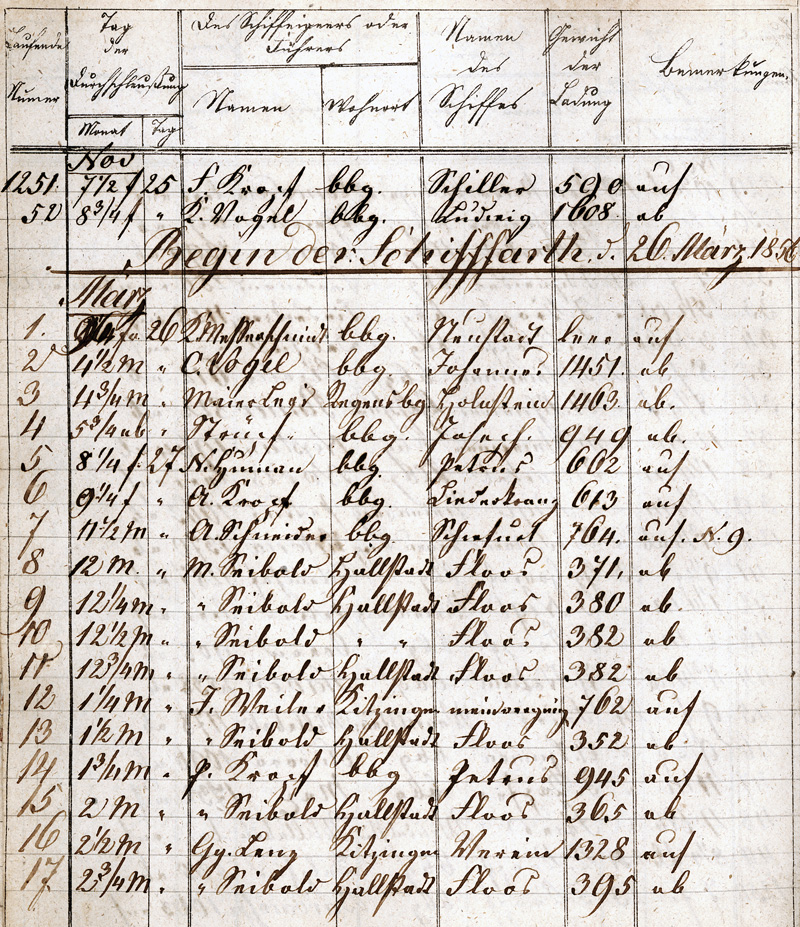 Laufende Numer
Tag der Durchschleußung
Monat Tag
Des Schiffeigners oder Führers
Namen Wohnort
Namen des Schiffes
Gewicht der Ladung
Bemerkungen.
Nov
1251. 7 1/2 f 25 F. Kropf bbg. Schiller 590 auf
52 8 3/4 f " K. Vogel bbg. Ludwig 1608. ab
Begin der Schifffarth. d. 26. März 1856
März
1. fr. 26 K. Messerschmidt bbg. Neustadt leer auf
2 4 1/2 m " C. Vogel bbg. Johannes 1451. ab
3 4 3/4 m " Maier Regensbg. Holnstein 1463. ab.
4 5 3/4 ab " bbg. Joseph. 949 ab.
5 8 1/4 f. 27 N. bbg. Petrus 602 auf
6 9 1/4 f " A. Kropf bbg. Liederkranz 613 auf
7 11 1/2 m " A. Schneider bbg. 764. auf. N. 9.
8 12 m. " M. Seibold Hallstadt Floos 371. ab
9 12 1/4 m. " Seibold Hallstadt Floos 380 ab.
10 12 1/2 m " " Seibold " " Floos 382 ab
11 12 3/4 m " " Seibold Hallstadt Floos 382 ab
12 1 1/4 m " J. Weiler Kitzingen 762 auf
13 1 1/2 m " Seibold Hallstadt Floos 352 ab.
14 1 3/4 m " P. Kropf bbg Petrus 945 auf
15 2 m " " Seibold Hallstadt Floos 365 ab
16 2 1/2 m " Gg. Lenz Kitzingen Verein 1328 auf
17 2 3/4 m " " Seibold Hallstadt Floos 395 ab